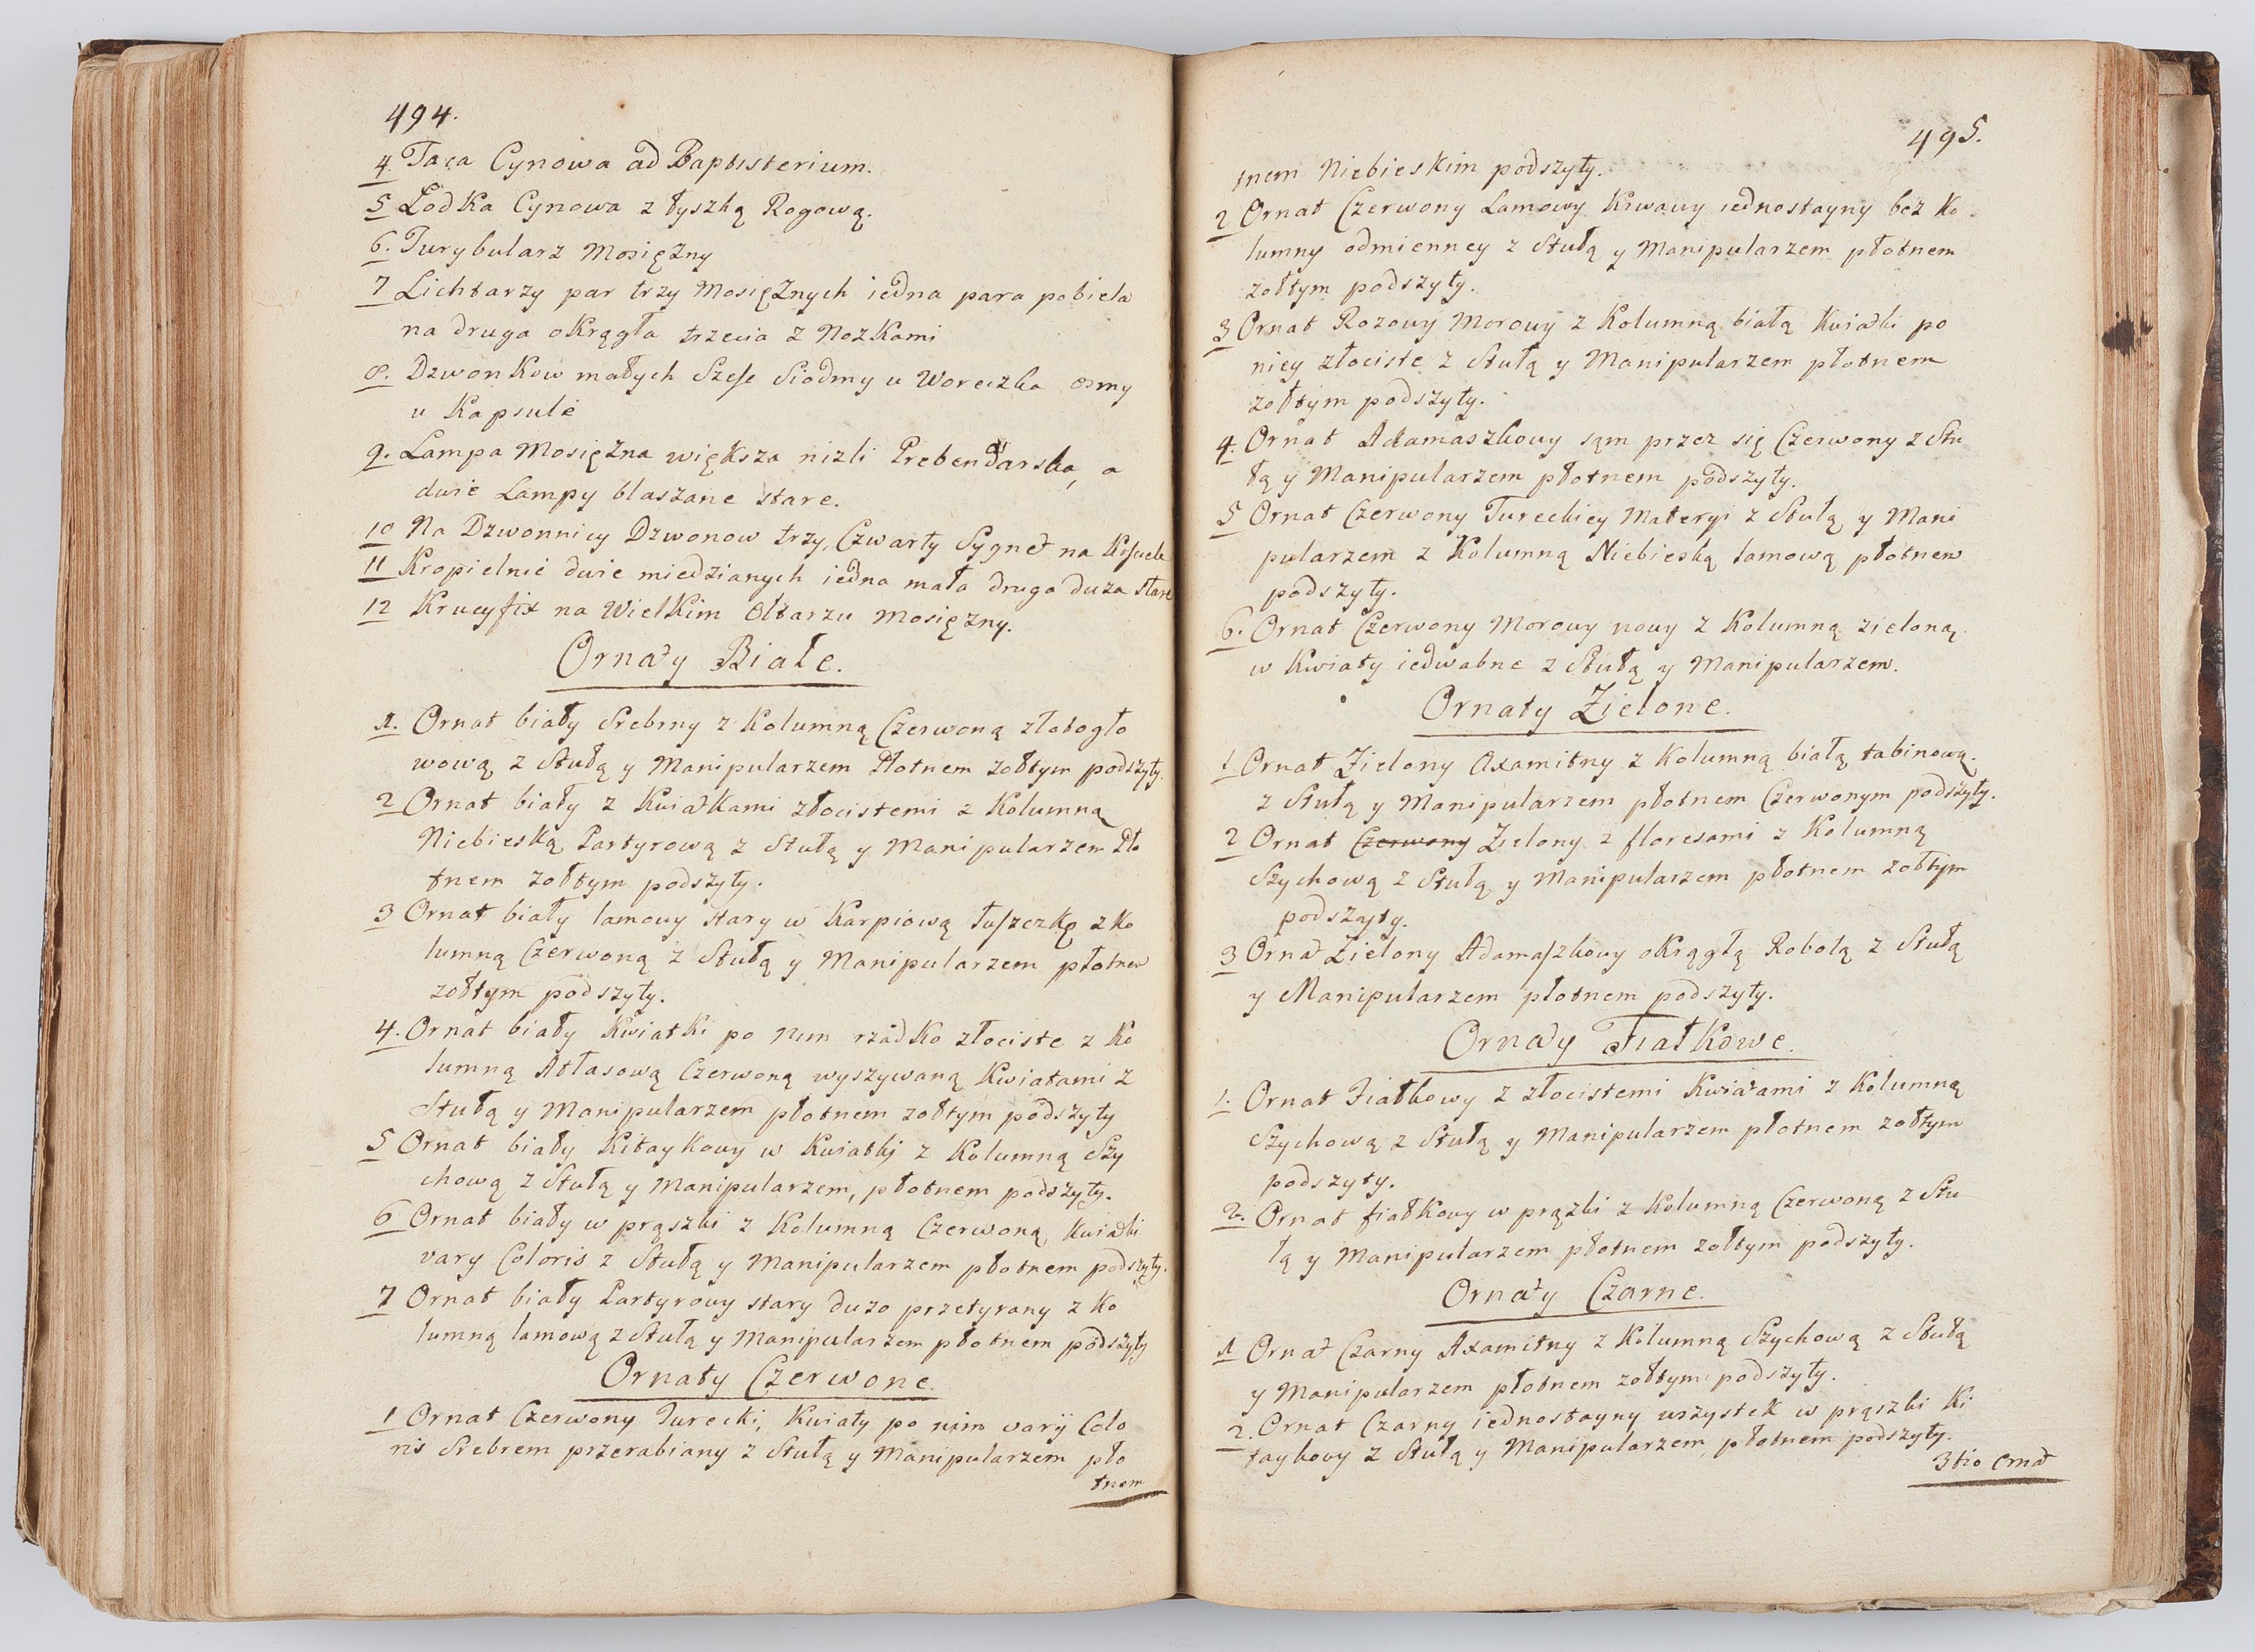 494.
4. Taca Cynowa ad Baptisterium.
5 Łodka Cynowa z łyszką Rogową.
6. Turybularz Mosiężny
7 Lichtarzy par trzy Mosiężnych iedna para pobiela
na druga okrągła trzecia z Nozkami
8. Dzwonkow małych Szesc Siodmy u Woreczka osmy
u Kapsule
9. Lampa Mosiężna większa nizli Prebendarska, a
dwie Lampy blaszane stare.
10 Na Dzwonnicy Dzwonow trzy, Czwarty Sygnet na
11 Kropielnie dwie miedzianych iedna mała druga duza stare
12 Krucyfix na Wielkim Ołtarzu Mosiężny.
Ornaty Białe.
1. Ornat biały Srebrny z Kolumną Czerwoną złotogło
wową z Stułą y Manipularzem Płotnem zołtym podszyty.
2 Ornat biały z Kwiatkami złocistemi z Kolumną
Niebieską Partyrową z Stułą y Manipularzem Pło
tnem zołtym podszyty.
3 Ornat biały lamowy stary w Karpiową łuszczkę z Ko
lumną Czerwoną z Stułą y Manipularzem płotnem
zołtym podszyty.
4. Ornat biały Kwiatki po nim rzadko złociste z Ko
lumną Atłasową Czerwoną wyszywaną Kwiatami z
Stułą y Manipularzem płotnem zołtym podszyty
5 Ornat biały Kitaykowy w Kwiatki z Kolumną Szy
chową z Stułą y Manipularzem, płotnem podszyty.
6 Ornat biały w prąszki z Kolumną Czerwoną Kwiatki
vary Coloris z Stułą y Manipularzem płotnem podszyty.
7 Ornat biały Partyrowy stary duzo przetyrany z Ko
lumną lamową z Stułą y Manipularzem płotnem podszyty
Ornaty Czerwone.
1 Ornat Czerwony Turecki, Kwiaty po nim varij Colo
ris Srebrem przerabiany z Stułą y Manipularzem pło
tnem
495.
tnem Niebieskim podszyty.
2 Ornat Czerwony Lamowy Krwawy iednostayny bez Ko
lumny odmienney z Stułą y Manipularzem płotnem
zołtym podszyty.
3 Ornat Rozowy Morowy z Kolumną białą Kwiatki po
niey złociste z Stułą y Manipularzem płotnem
zołtym podszyty.
4. Ornat Adamaszkowy sąm przez się Czerwony z Stu
łą y Manipularzem płotnem podszyty.
5 Ornat Czerwony Tureckiey Materyi z Stułą y Mani
pularzem z Kolumną Niebieską lamową płotnem
podszyty.
6. Ornat Czerwony Morowy nowy z Kolumną zieloną
w Kwiaty iedwabne z Stułą y Manipularzem.
Ornaty Zielone.
1 Ornat Zielony Axamitny z Kolumną białą tabinową.
z Stułą y Manipularzem płotnem Czerwonym podszyty.
2 Ornat Czerwony Zielony z floresami z Kolumną
Szychową z Stułą y Manipularzem płotnem zołtym
podszyty.
3 Ornat Zielony Adamaszkowy okrągłą Robotą z Stułą
y Manipularzem płotnem podszyty.
Ornaty Fiałkowe.
1. Ornat Fiałkowy z złocistemi Kwiatami z Kolumną
Szychową z Stułą y Manipularzem płotnem zołtym
podszyty.
2. Ornat fiałkowy w prążki z Kolumną Czerwoną z Stu
łą y Manipularzem płotnem zołtym podszyty.
Ornaty Czarne.
1 Ornat Czarny Axamitny z Kolumną Szychową z Stułą
y Manipularzem płotnem zołtym podszyty.
2. Ornat Czarny iednostayny wszystek w prąszki Ki
taykowy z Stułą y Manipularzem płotnem podszyty.
3tio Ornat